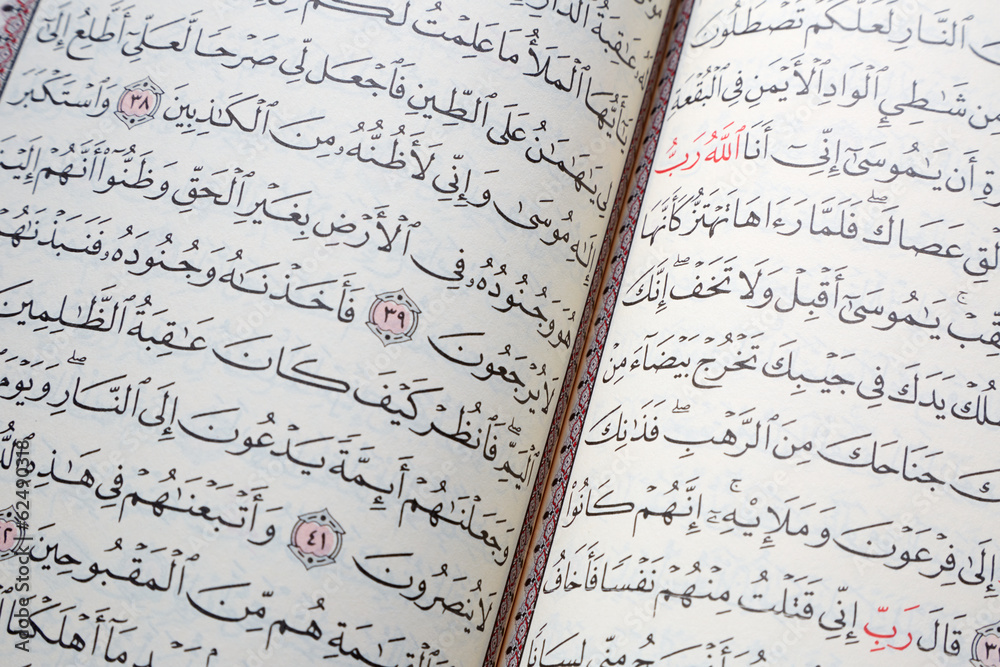 ٱلنَّارِ لَعَلَّكُمْ تَصْطَلُونَ
مِن شَٰطِئِ ٱلْوَادِ ٱلْأَيْمَنِ فِى ٱلْبُقْعَةِ
أَن يَٰمُوسَىٰٓ إِنِّىٓ أَنَا ٱللَّهُ رَبُّ
عَصَاكَ ۖ فَلَمَّا رَءَاهَا تَهْتَزُّ كَأَنَّهَا
يَٰمُوسَىٰٓ أَقْبِلْ وَلَا تَخَفْ ۖ إِنَّكَ
يَدَكَ فِى جَيْبِكَ تَخْرُجْ بَيْضَآءَ مِنْ
جَنَاحَكَ مِنَ ٱلرَّهْبِ ۖ فَذَٰنِكَ
إِلَىٰ فِرْعَوْنَ وَمَلَإِيْهِۦٓ ۚ إِنَّهُمْ كَانُوا۟
قَالَ رَبِّ إِنِّى قَتَلْتُ مِنْهُمْ نَفْسًا فَأَخَافُ
مِنِّى لِسَانًا
عَٰقِبَةُ ٱلدَّارِ
ٱلْمَلَأُ مَا عَلِمْتُ لَكُم
لِى يَٰهَٰمَٰنُ عَلَى ٱلطِّينِ فَٱجْعَل لِّى صَرْحًا لَّعَلِّىٓ أَطَّلِعُ إِلَىٰٓ
إِلَٰهِ مُوسَىٰ وَإِنِّى لَأَظُنُّهُۥ مِنَ ٱلْكَٰذِبِينَ ٣٨ وَٱسْتَكْبَرَ
هُوَ وَجُنُودُهُۥ فِى ٱلْأَرْضِ بِغَيْرِ ٱلْحَقِّ وَظَنُّوٓا۟ أَنَّهُمْ
لَا يُرْجَعُونَ ٣٩ فَأَخَذْنَٰهُ وَجُنُودَهُۥ فَنَبَذْنَٰهُمْ
ٱلْيَمِّ ۖ فَٱنظُرْ كَيْفَ كَانَ عَٰقِبَةُ ٱلظَّٰلِمِينَ
وَجَعَلْنَٰهُمْ أَئِمَّةً يَدْعُونَ إِلَى ٱلنَّارِ ۖ وَيَوْمَ
لَا يُنصَرُونَ ٤١ وَأَتْبَعْنَٰهُمْ فِى هَٰذِهِ
ٱلْقِيَٰمَةِ هُم مِّنَ ٱلْمَقْبُوحِينَ
مَآ أَهْلَكْنَا
Adobe Stock | #62490318